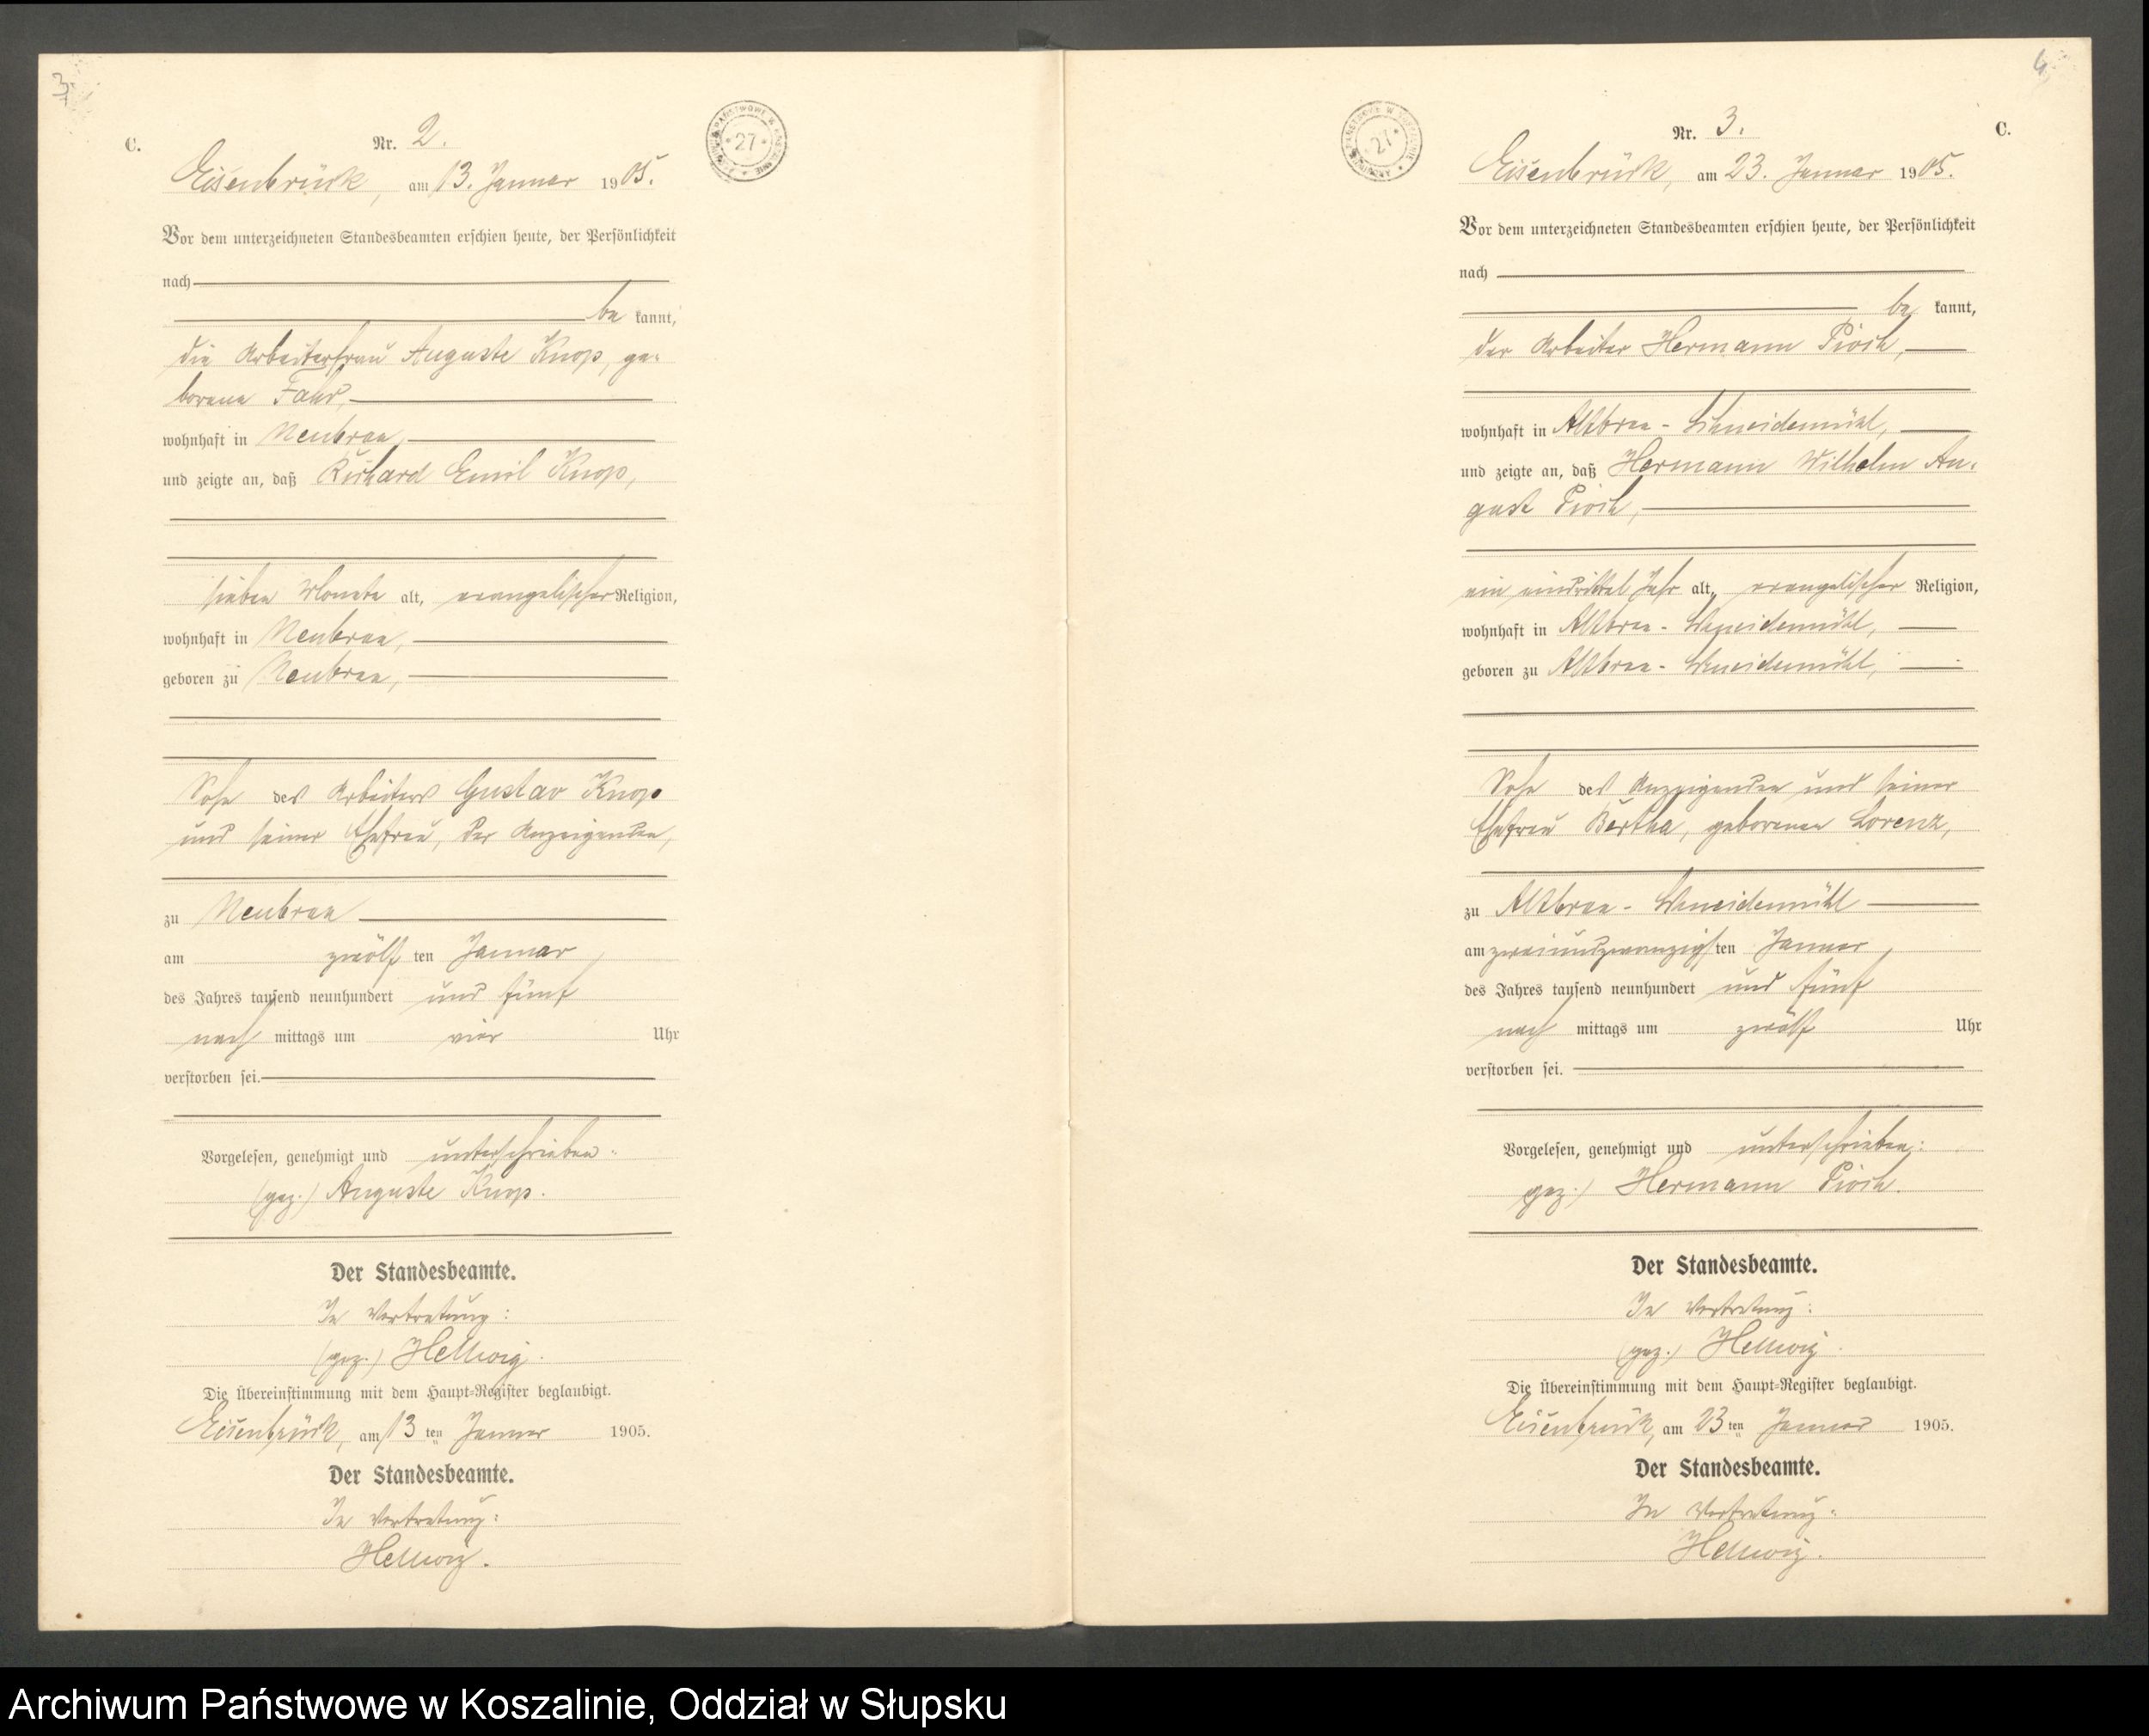 3
C.
Nr. 2.
Eisenbrück, am 13. Januar 1905.
Vor dem unterzeichneten Standesbeamten erschien heute, der Persönlichkeit
nach
be kannt,
die Arbeiterfrau Auguste Knop, ge-
borene Fahs,
wohnhaft in Neubraa,
und zeigte an, daß Richard Emil Knop,
sieben Monate alt, evangelischer Religion,
wohnhaft in Neubraa,
geboren zu Neubraa,
Sohn des Arbeiters Gustav Knop
und seiner Ehefrau, der Anzeigenden,
zu Neubraa
am zwölf ten Januar,
des Jahres tausend neunhundert und fünf
nach mittags um vier Uhr
verstorben sei.
Vorgelesen, genehmigt und unterschrieben:
(gez.) Auguste Knop.
Der Standesbeamte.
In Vertretung:
(gez.) Hellwig.
Die Übereinstimmung mit dem Haupt-Register beglaubigt.
Eisenbrück, am 13 ten Januar 1905.
Der Standesbeamte.
In Vertretung:
Hellwig.
27
4
C.
Nr. 3.
Eisenbrück, am 23. Januar 1905.
Vor dem unterzeichneten Standesbeamten erschien heute, der Persönlichkeit
nach
be kannt,
der Arbeiter Hermann Pioch,
wohnhaft in Altbraa-Schneidemühl,
und zeigte an, daß Hermann Wilhelm Au-
gust Pioch,
ein eindrittel Jahr alt, evangelischer Religion,
wohnhaft in Altbraa-Schneidemühl,
geboren zu Altbraa-Schneidemühl,
Sohn des Anzeigenden und seiner
Ehefrau Bertha, geborenen Lorenz,
zu Altbraa-Schneidemühl
am zweiundzwanzigsten Januar,
des Jahres tausend neunhundert und fünf
nach mittags um zwölf Uhr
verstorben sei.
Vorgelesen, genehmigt und unterschrieben:
gez.) Hermann Pioch.
Der Standesbeamte.
In Vertretung:
(gez.) Hellwig.
Die Übereinstimmung mit dem Haupt-Register beglaubigt.
Eisenbrück, am 23 ten Januar 1905.
Der Standesbeamte.
In Vertretung:
Hellwig.
27
Archiwum Państwowe w Koszalinie, Oddział w Słupsku